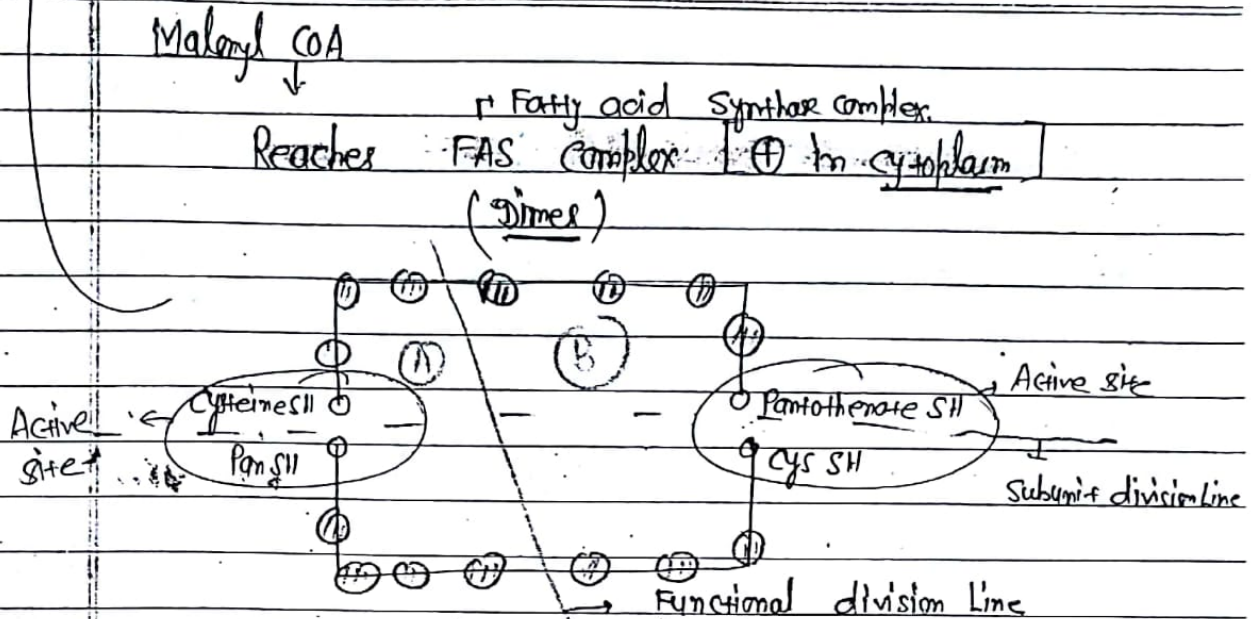 Malonyl COA
↓
Fatty acid Synthase complex.
Reaches FAS Complex ⊕ In cytoplasm
(Dimer)
A B
Active site
Cysteine SH Pantothenate SH
Active site
Pan SH Cys SH
Subunit division Line
Functional division Line